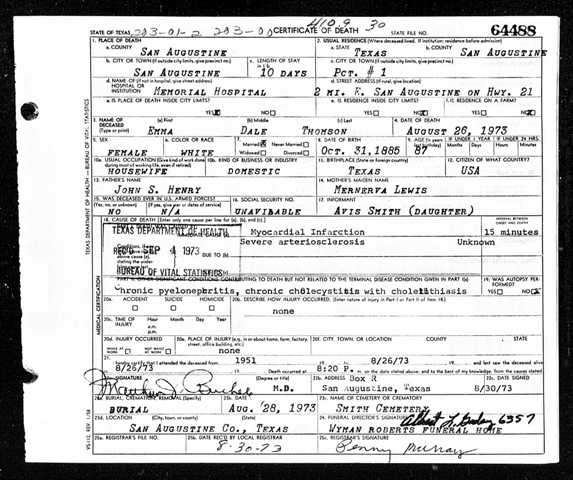 4109 30
STATE OF TEXAS 203-01-2 203-00 CERTIFICATE OF DEATH STATE FILE NO. 64488
1. PLACE OF DEATH 2. USUAL RESIDENCE (Where deceased lived. If institution: residence before admission)
a. COUNTY a. STATE b. COUNTY
SAN AUGUSTINE TEXAS SAN AUGUSTINE
b. CITY OR TOWN (If outside city limits, give precinct no.) c. LENGTH OF STAY c. CITY OR TOWN (If outside city limits, give precinct no.)
SAN AUGUSTINE 10 DAYS PCT. # 1
d. NAME OF (If not in hospital, give street address) d. STREET ADDRESS (If rural, give location)
HOSPITAL OR INSTITUTION MEMORIAL HOSPITAL 2 MI. E. SAN AUGUSTINE ON HWY. 21
e. IS PLACE OF DEATH INSIDE CITY LIMITS? e. IS RESIDENCE INSIDE CITY LIMITS? f. IS RESIDENCE ON A FARM?
YES NO YES NO YES NO
3. NAME OF DECEASED (Type or print) (a) First (b) Middle (c) Last 4. DATE OF DEATH
EMMA DALE THOMSON AUGUST 26, 1973
5. SEX 6. COLOR OR RACE 7. Married Never Married Widowed Divorced 8. DATE OF BIRTH 9. AGE IF UNDER 1 YEAR IF UNDER 24 HRS.
FEMALE WHITE OCT. 31, 1885 87 Months Days Hours Min.
10a. USUAL OCCUPATION (Give kind of work done during most of working life, even if retired) 10b. KIND OF BUSINESS OR INDUSTRY 11. BIRTHPLACE (State or foreign country) 12. CITIZEN OF WHAT COUNTRY?
HOUSEWIFE DOMESTIC TEXAS USA
13. FATHER'S NAME 14. MOTHER'S MAIDEN NAME
JOHN S. HENRY MERNERVA LEWIS
15. WAS DECEASED EVER IN U.S. ARMED FORCES? 16. SOCIAL SECURITY NO. 17. INFORMANT
NO N/A UNAVIBABLE AVIS SMITH (DAUGHTER)
18. CAUSE OF DEATH (Enter only one cause per line for (a), (b), and (c).) INTERVAL BETWEEN ONSET AND DEATH
TEXAS DEPARTMENT OF HEALTH Myocardial Infarction 15 minutes
REC'D SEP 4 1973 DUE TO Severe arteriosclerosis Unknown
BUREAU OF VITAL STATISTICS
CONDITIONS CONTRIBUTING TO DEATH BUT NOT RELATED TO THE TERMINAL DISEASE CONDITION GIVEN IN PART I(a) 19. WAS AUTOPSY PERFORMED?
Chronic pyelonephritis, chronic cholecystitis with cholelithiasis YES NO
20a. ACCIDENT SUICIDE HOMICIDE 20b. DESCRIBE HOW INJURY OCCURRED. (Enter nature of injury in Part I or Part II of item 18.)
none
20c. TIME OF INJURY Hour Month Day Year
a.m.
p.m.
20d. INJURY OCCURRED 20e. PLACE OF INJURY (e.g., in or about home, farm, factory, street, office building, etc.) 20f. CITY, TOWN, OR LOCATION COUNTY STATE
WHILE AT WORK NOT WHILE AT WORK none
21. I hereby certify that I attended the deceased from 1951 8/26/73 and last saw the deceased alive
8/26/73 Death occurred at 8:20 P m. on the date stated above, and to the best of my knowledge, from the causes stated
22a. SIGNATURE (Degree or title) 22b. ADDRESS Box R 22c. DATE SIGNED
M.D. San Augustine, Texas 8/30/73
23a. BURIAL, CREMATION, REMOVAL (Specify) 23b. DATE 23c. NAME OF CEMETERY OR CREMATORY
BURIAL AUG. 28, 1973 SMITH CEMETERY
23d. LOCATION (City, town, or county) (State) 24. FUNERAL DIRECTOR'S SIGNATURE 6357
SAN AUGUSTINE CO., TEXAS WYMAN ROBERTS FUNERAL HOME
25a. REGISTRAR'S FILE NO. 25b. DATE REC'D BY LOCAL REGISTRAR 25c. REGISTRAR'S SIGNATURE
8-30-73 Penny Murray
TEXAS DEPARTMENT OF HEALTH — BUREAU OF VITAL STATISTICS
MEDICAL CERTIFICATION